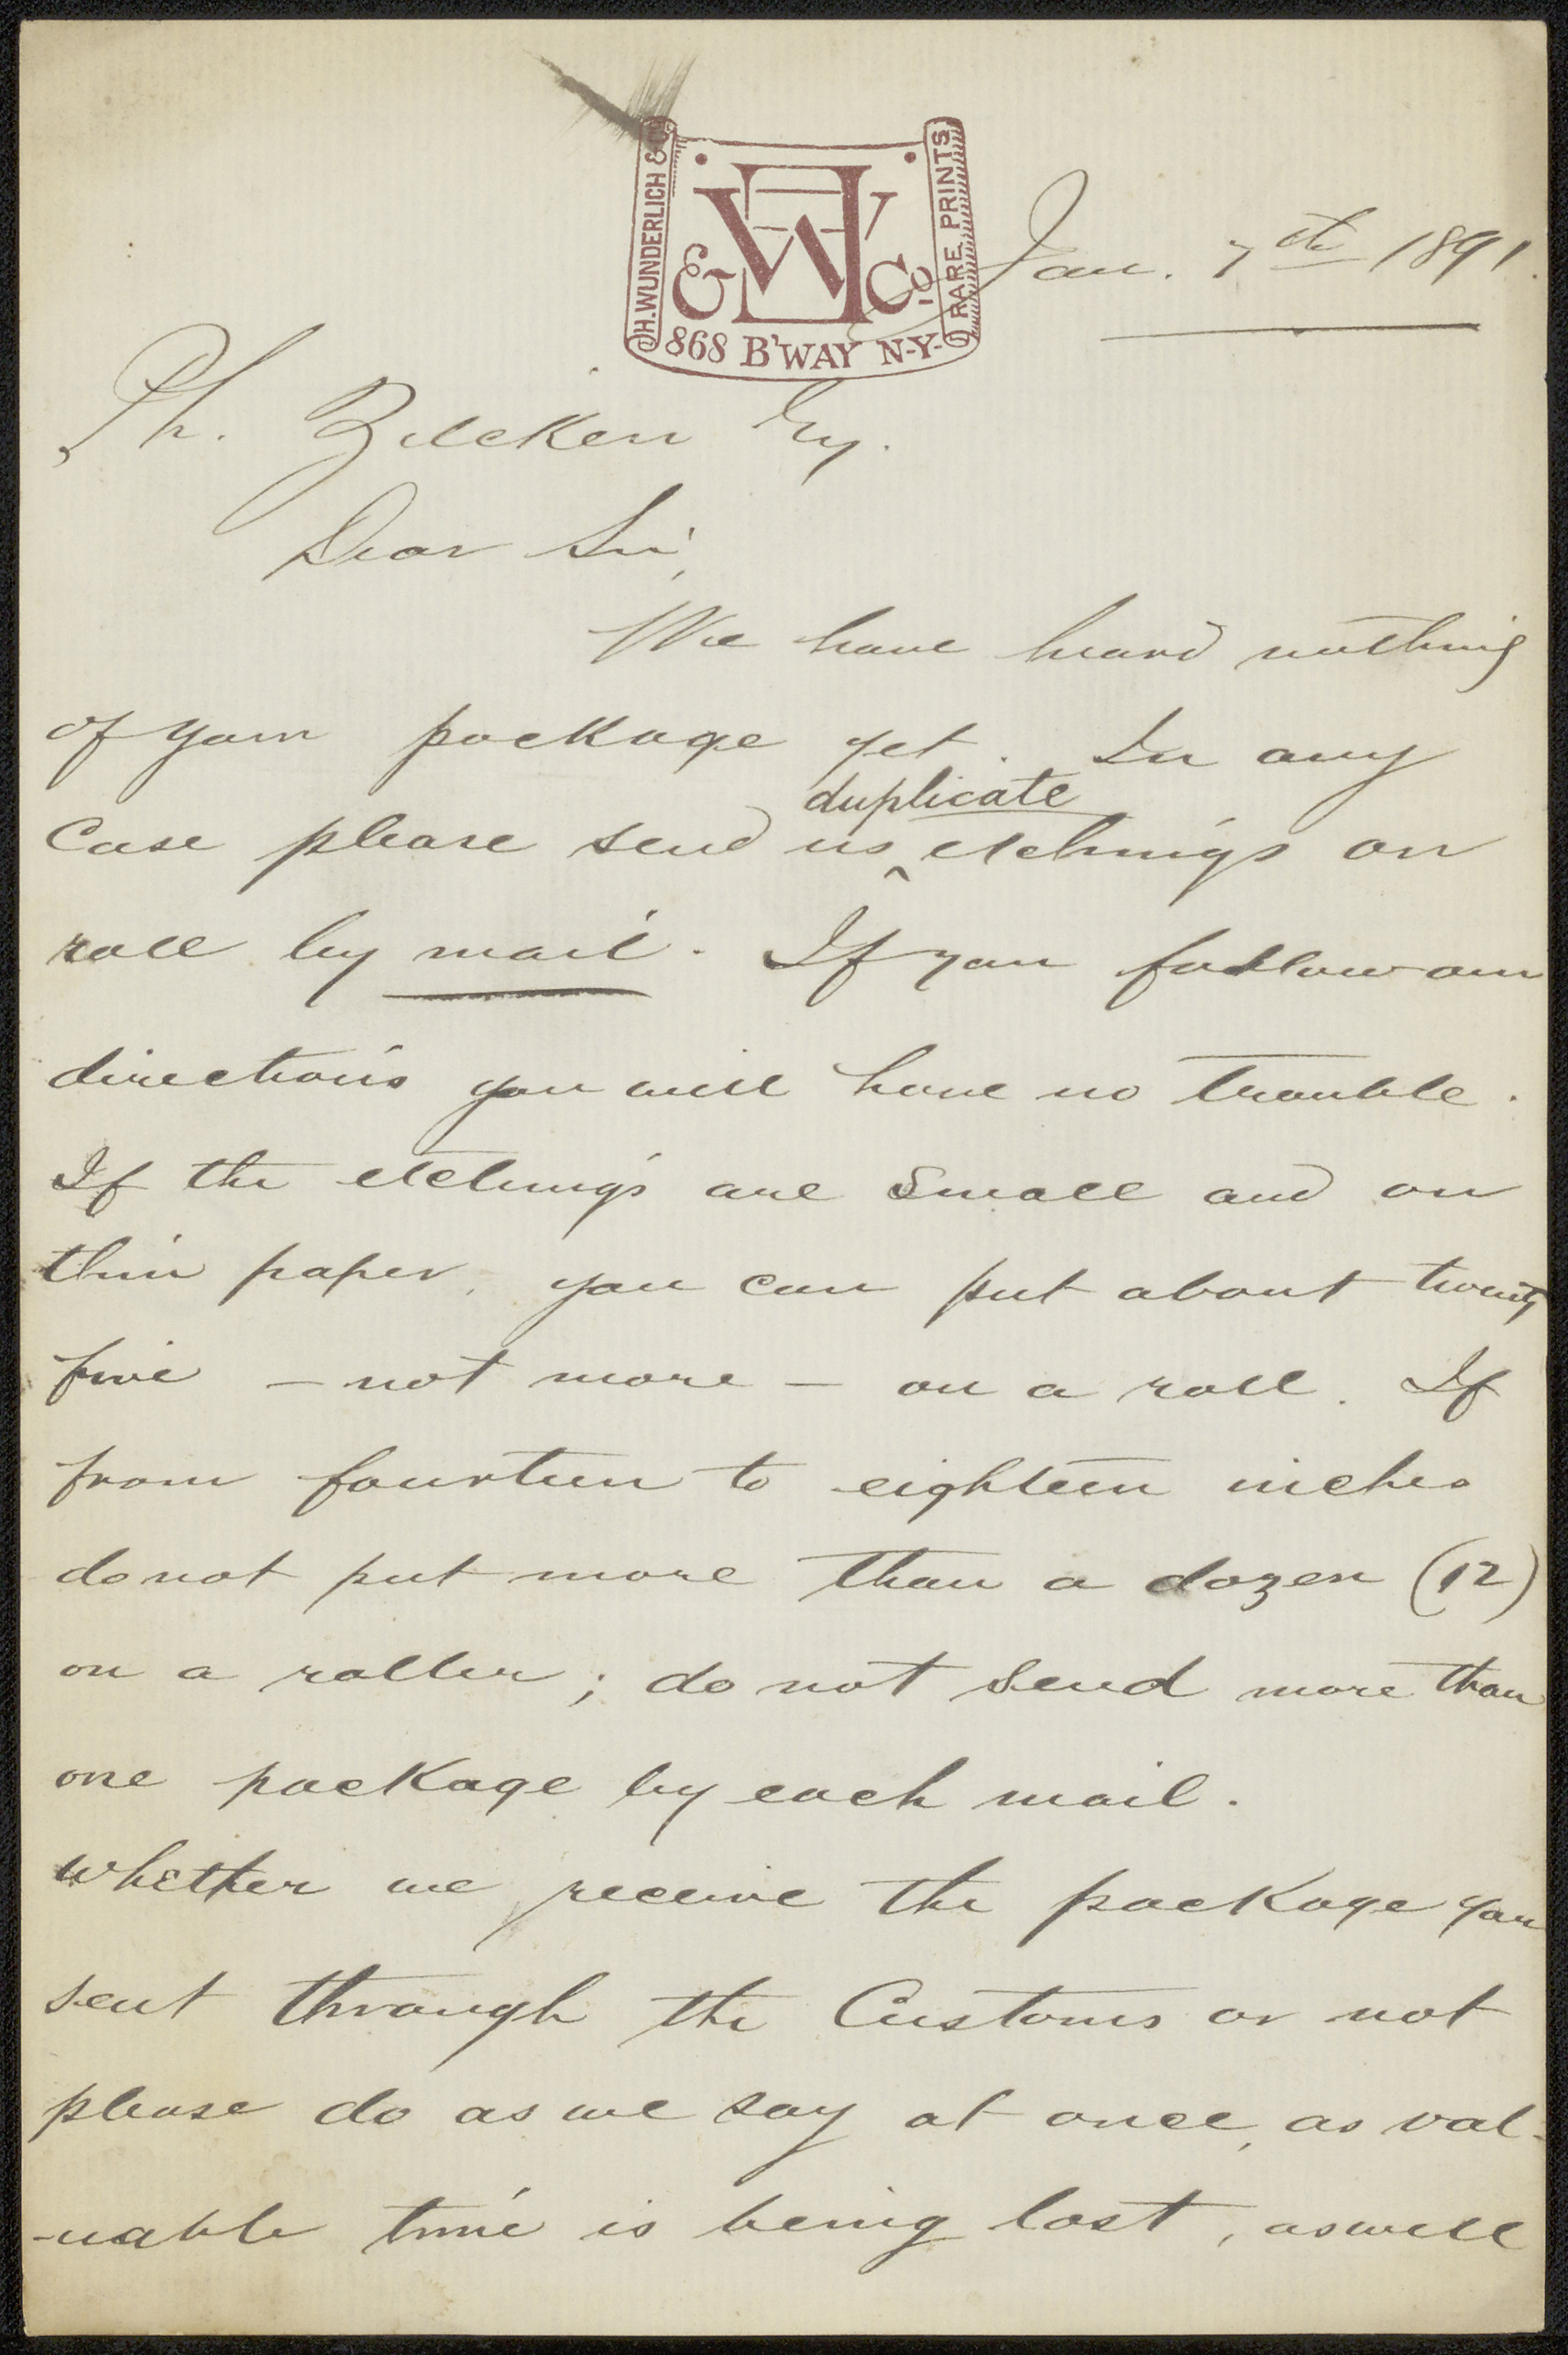 H. WUNDERLICH & CO
RARE PRINTS
HW & Co
868 B'WAY N-Y-
Jan. 7th 1891.
Ph. Zilcken Esq.
Dear Sir,
We have heard nothing
of your package yet. In any
Case please send us duplicate etchings on
roll by mail. If you follow our
directions you will have no trouble.
If the etchings are small and on
thin paper, you can put about twenty
five — not more — on a roll. If
from fourteen to eighteen inches
do not put more than a dozen (12)
on a roller; do not send more than
one package by each mail.
Whether we receive the package you
sent through the Customs or not
please do as we say at once, as val-
-uable time is being lost, as well